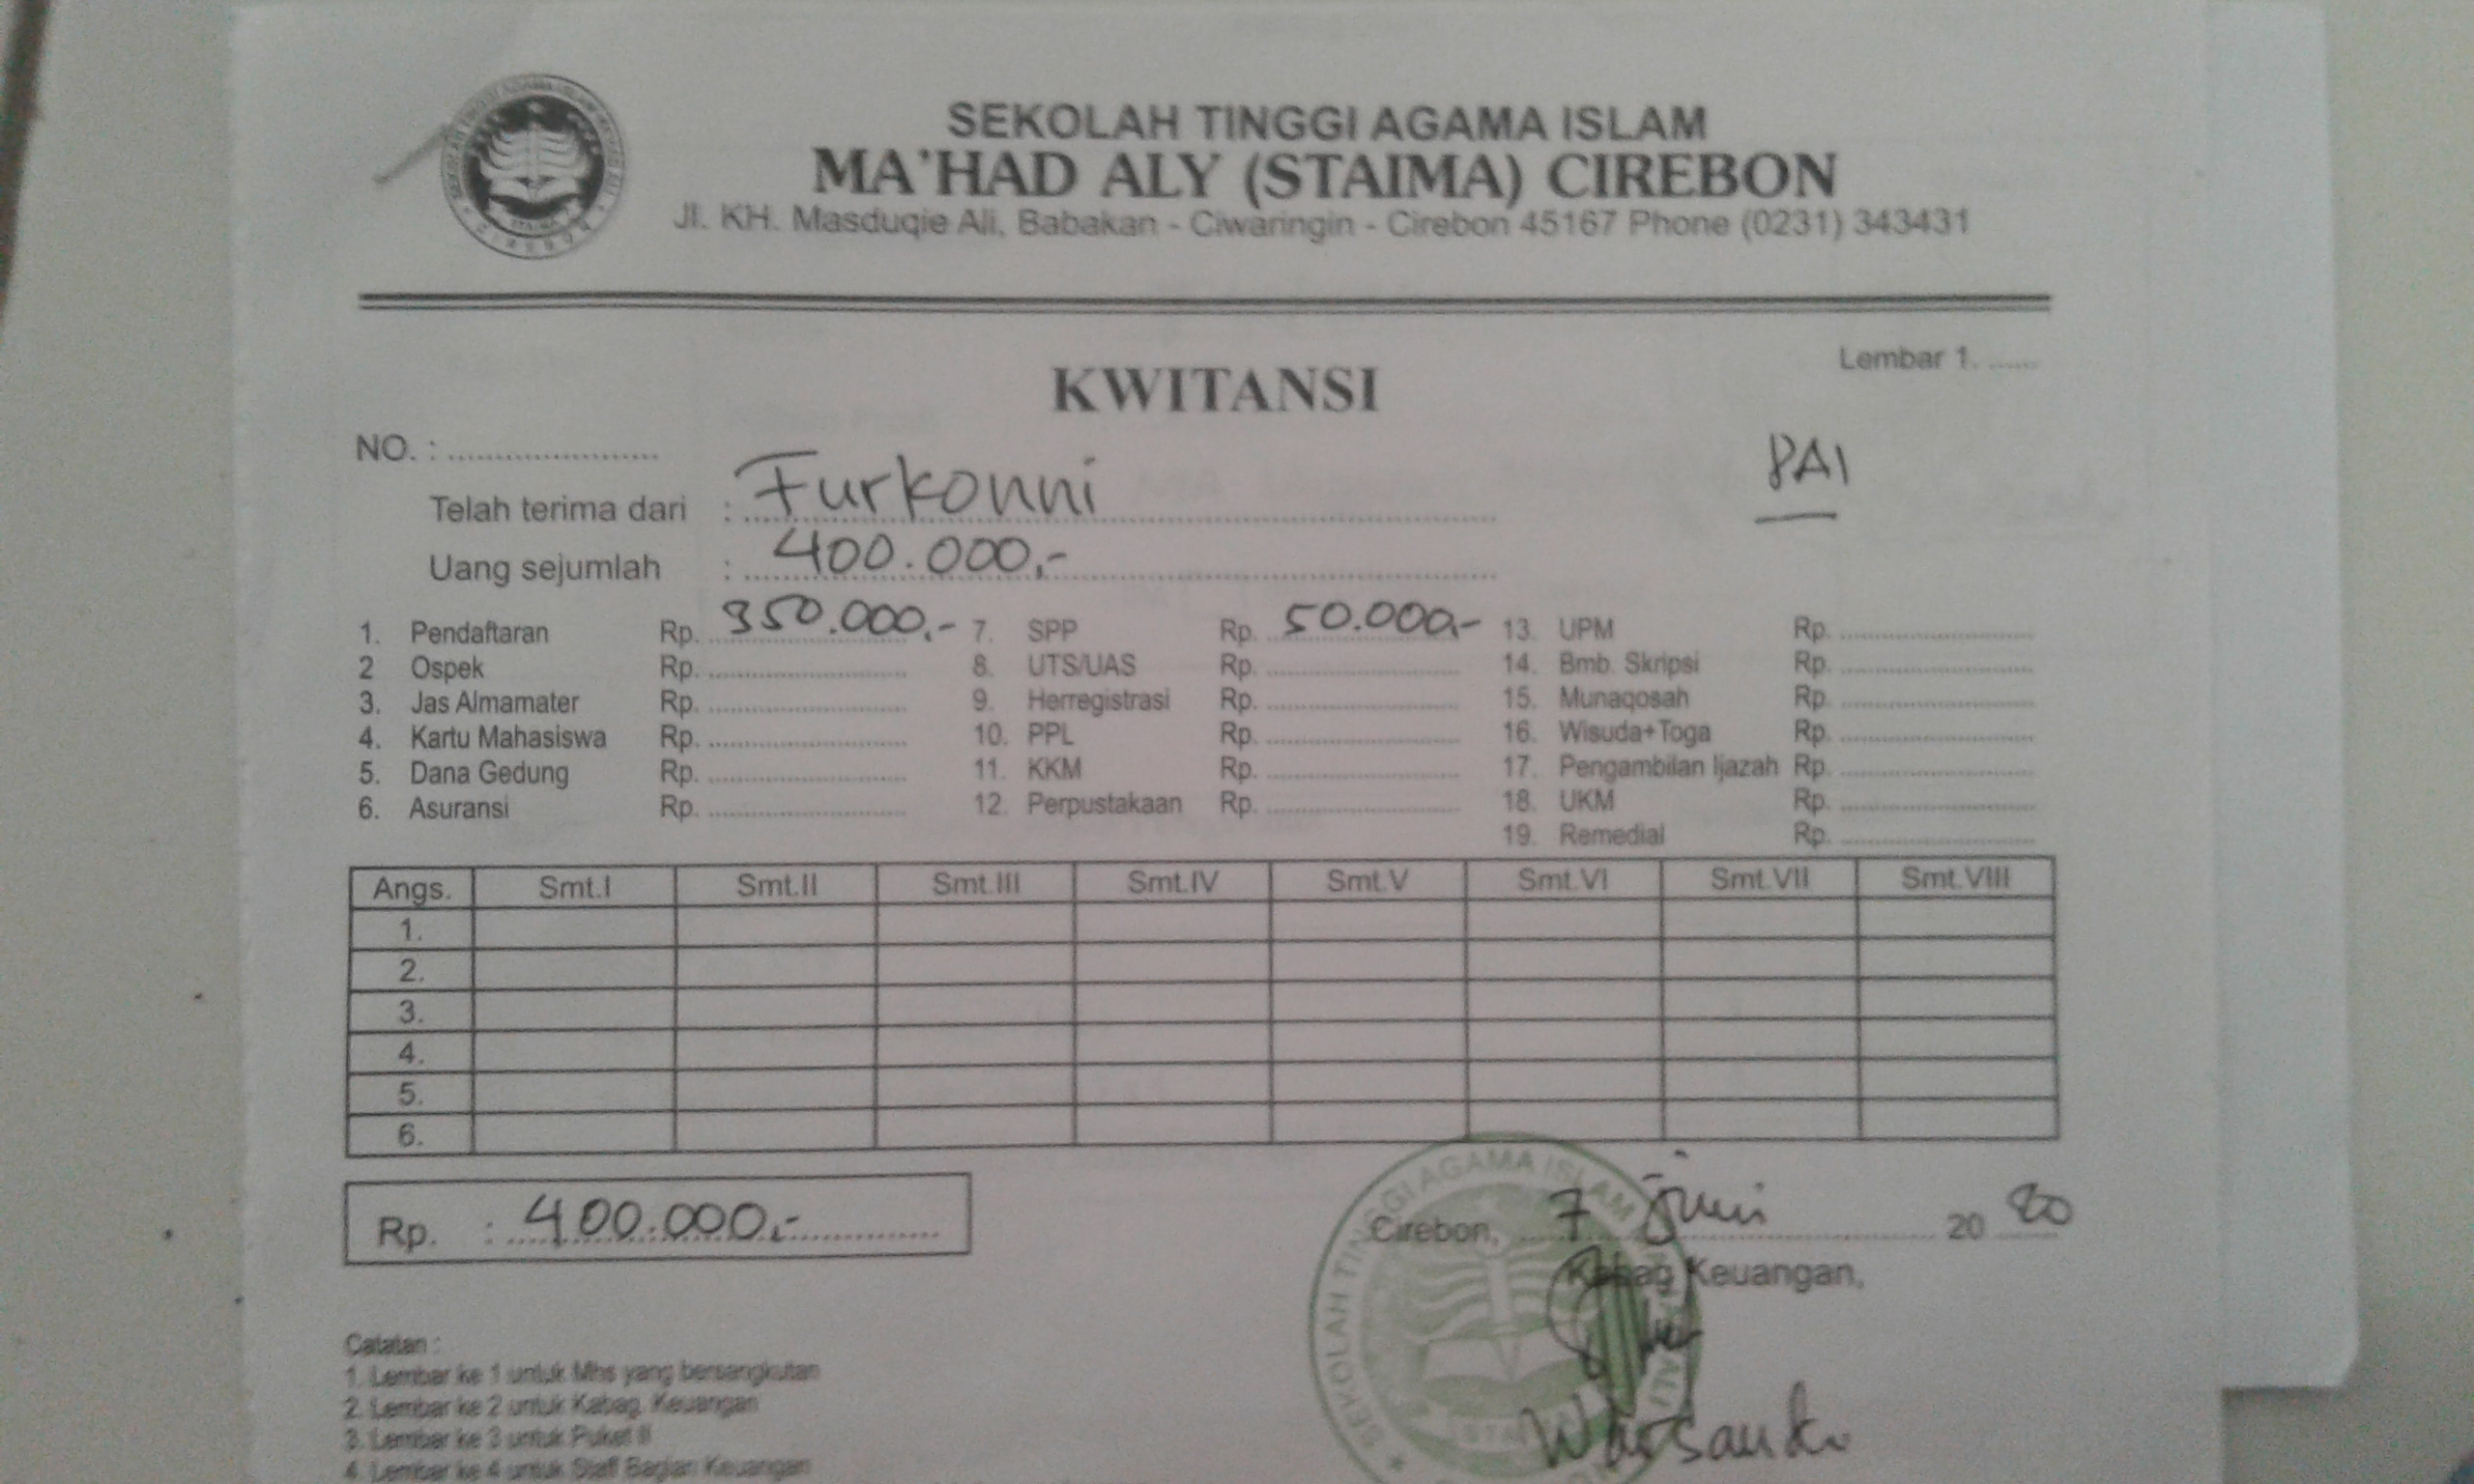 SEKOLAH TINGGI AGAMA ISLAM
MA'HAD ALY (STAIMA) CIREBON
Jl. KH. Masduqie Ali, Babakan - Ciwaringin - Cirebon 45167 Phone (0231) 343431
Lembar 1. ......
KWITANSI
NO. : ......................
PAI
Telah terima dari : Furkonni
Uang sejumlah : 400.000,-
1. Pendaftaran Rp. 350.000,- 7. SPP Rp. 50.000,- 13. UPM Rp. ......................
2 Ospek Rp. ...................... 8. UTS/UAS Rp. ...................... 14. Bmb. Skripsi Rp. ......................
3. Jas Almamater Rp. ...................... 9. Herregistrasi Rp. ...................... 15. Munaqosah Rp. ......................
4. Kartu Mahasiswa Rp. ...................... 10. PPL Rp. ...................... 16. Wisuda+Toga Rp. ......................
5. Dana Gedung Rp. ...................... 11. KKM Rp. ...................... 17. Pengambilan Ijazah Rp. ......................
6. Asuransi Rp. ...................... 12. Perpustakaan Rp. ...................... 18. UKM Rp. ......................
19. Remedial Rp. ......................
Angs. Smt.I Smt.II Smt.III Smt.IV Smt.V Smt.VI Smt.VII Smt.VIII
1.
2.
3.
4.
5.
6.
Rp. : 400.000,-
Cirebon, 7 Juni 20 20
Kabag Keuangan,
SEKOLAH TINGGI AGAMA ISLAM
Catatan :
1. Lembar ke 1 untuk Mhs yang bersangkutan
2. Lembar ke 2 untuk Kabag. Keuangan
3. Lembar ke 3 untuk Puket II
4. Lembar ke 4 untuk Staff Bagian Keuangan